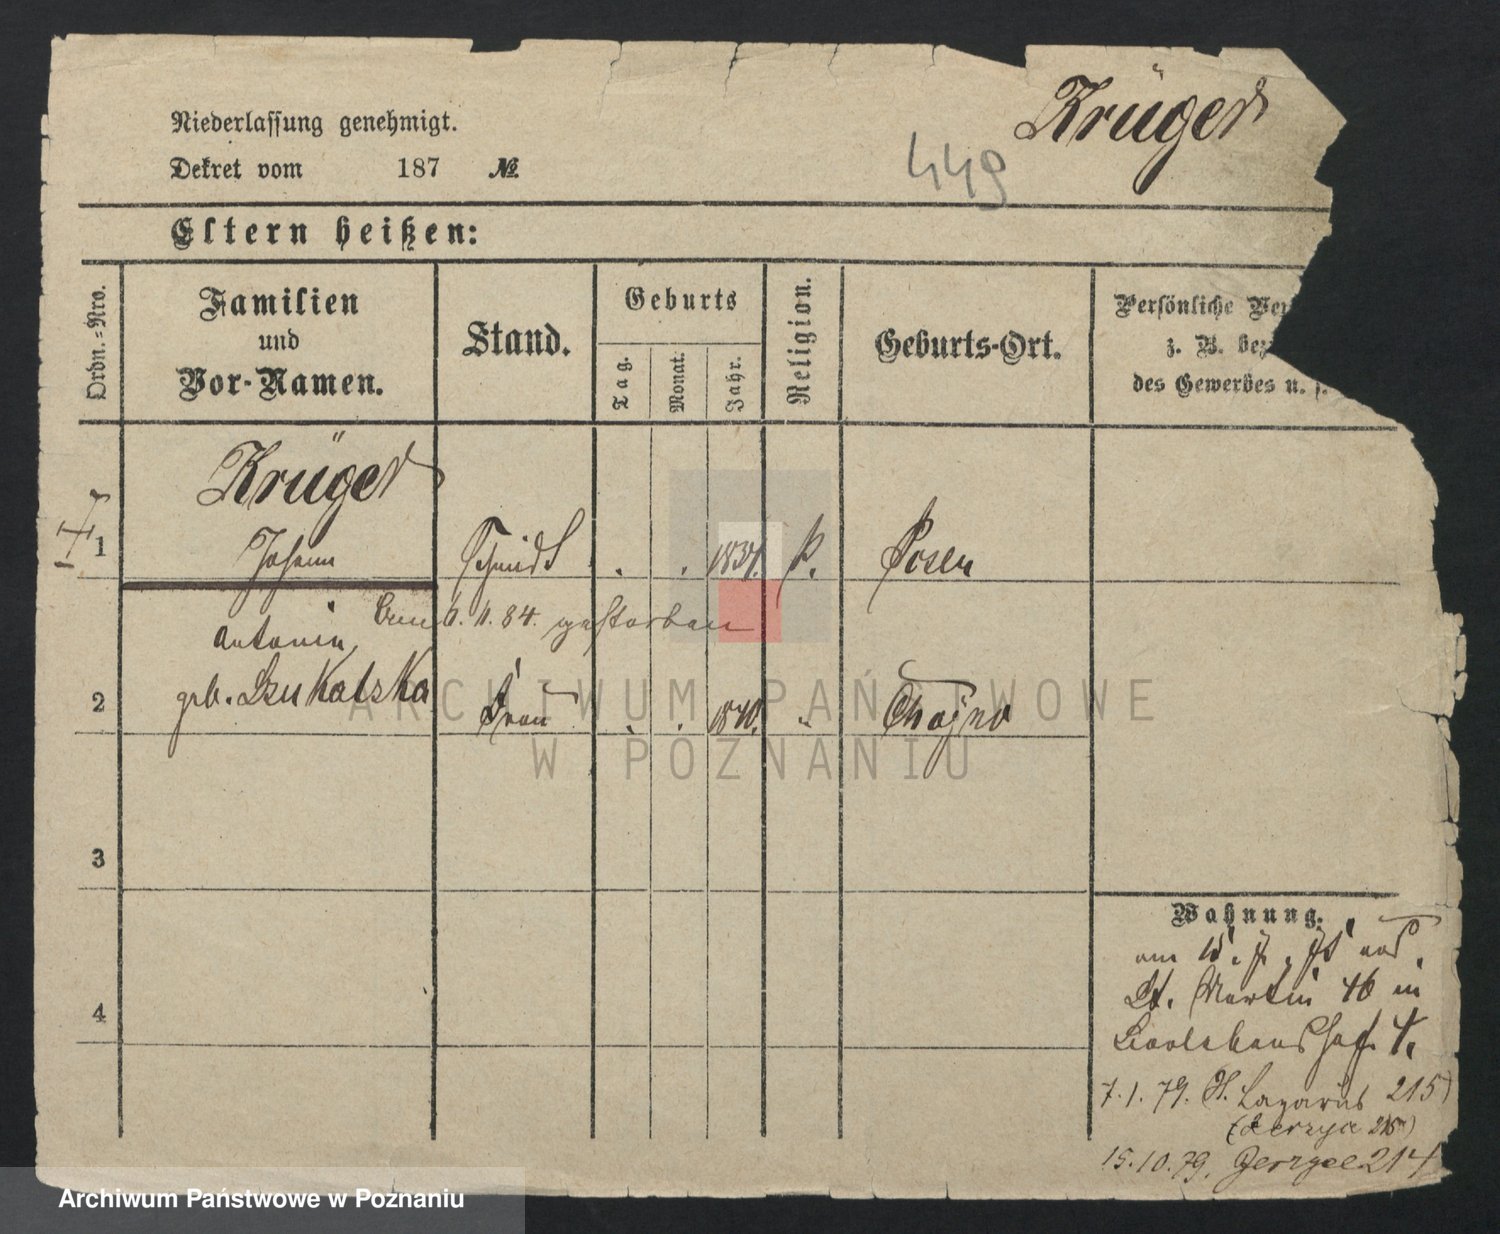 Krüger
449
Niederlassung genehmigt.
Dekret vom 187 №
Eltern heißen:
Ordn.-Nro.
Familien
und
Vor-Namen.
Stand.
Geburts
Tag.
Monat.
Jahr.
Religion.
Geburts-Ort.
Persönliche Ver
z. B. bez
des Gewerbes u. s.
Krüger
1 Johann Schmidt . . 1837. k. Posen
am 6. 11. 84. gestorben
Antonie
2 geb. Frau . . 1840. " Chojno
3
4
Wohnung.
am 15. 7.
St. Martin 46 in
7.1.79. St. Lazarus 215
(Jerzyce 215)
15.10.79. Jerzyce 214
ARCHIWUM PAŃSTWOWE
W POZNANIU
Archiwum Państwowe w Poznaniu